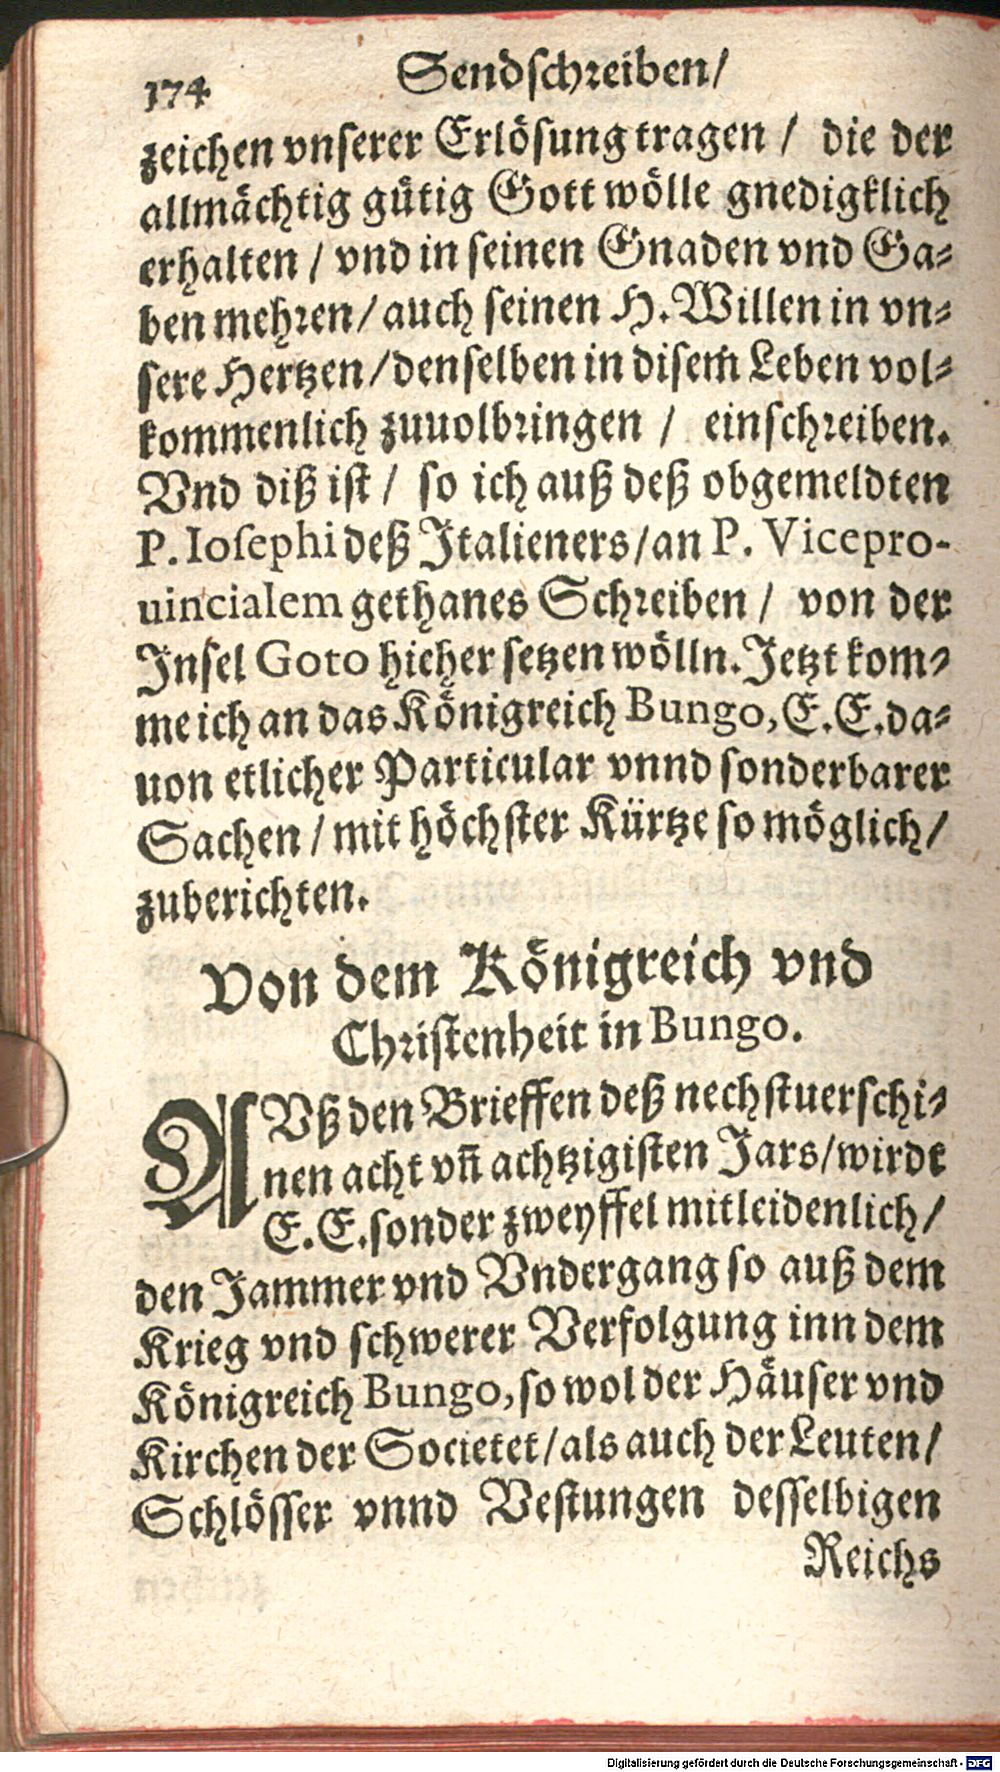 174 Sendſchreiben/
zeichen vnſerer Erlöſung tragen / die der
allmächtig gütig Gott wölle gnedigklich
erhalten / vnd in ſeinen Gnaden vnd Ga⸗
ben mehren / auch ſeinen H. Willen in vn⸗
ſere Hertzen / denſelben in diſem̃ Leben vol⸗
kommenlich zuuolbringen / einſchreiben.
Vnd diß iſt / ſo ich auß deß obgemeldten
P. Ioſephi deß Italieners / an P. Vicepro-
uincialem gethanes Schreiben / von der
Inſel Goto hieher ſetzen wölln. Jetzt kom⸗
me ich an das Königreich Bungo, E. E. da⸗
uon etlicher Particular vnnd ſonderbarer
Sachen / mit höchſter Kürtze ſo möglich /
zuberichten.
Von dem Königreich vnd
Chriſtenheit in Bungo.
AVß den Brieffen deß nechſtuerſchi⸗
nen acht vñ achtzigiſten Jars / wirdt
E. E. ſonder zweyffel mitleidenlich /
den Jammer vnd Vndergang ſo auß dem
Krieg vnd ſchwerer Verfolgung inn dem
Königreich Bungo, ſo wol der Häuſer vnd
Kirchen der Societet / als auch der Leuten /
Schlöſſer vnnd Veſtungen deſſelbigen
Reichs
Digitalisierung gefördert durch die Deutsche Forschungsgemeinschaft - DFG